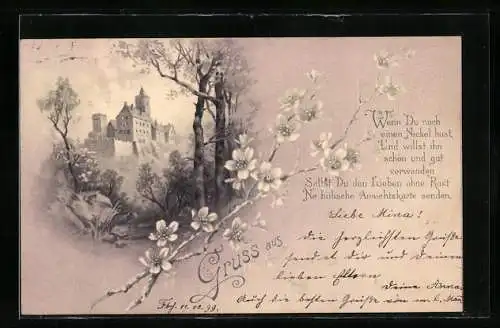 Wenn Du noch
einen Nickel hast,
Und willst ihn
schön und gut
verwenden
Sollst Du den Lieben ohne Rast
Ne hübsche Ansichtskarte senden.
Gruss aus
Liebe Mina!
Die herzlichsten Grüße
sendet dir und Deinen
lieben Eltern
Deine Anna
Auch die besten Grüße von m. l. Man